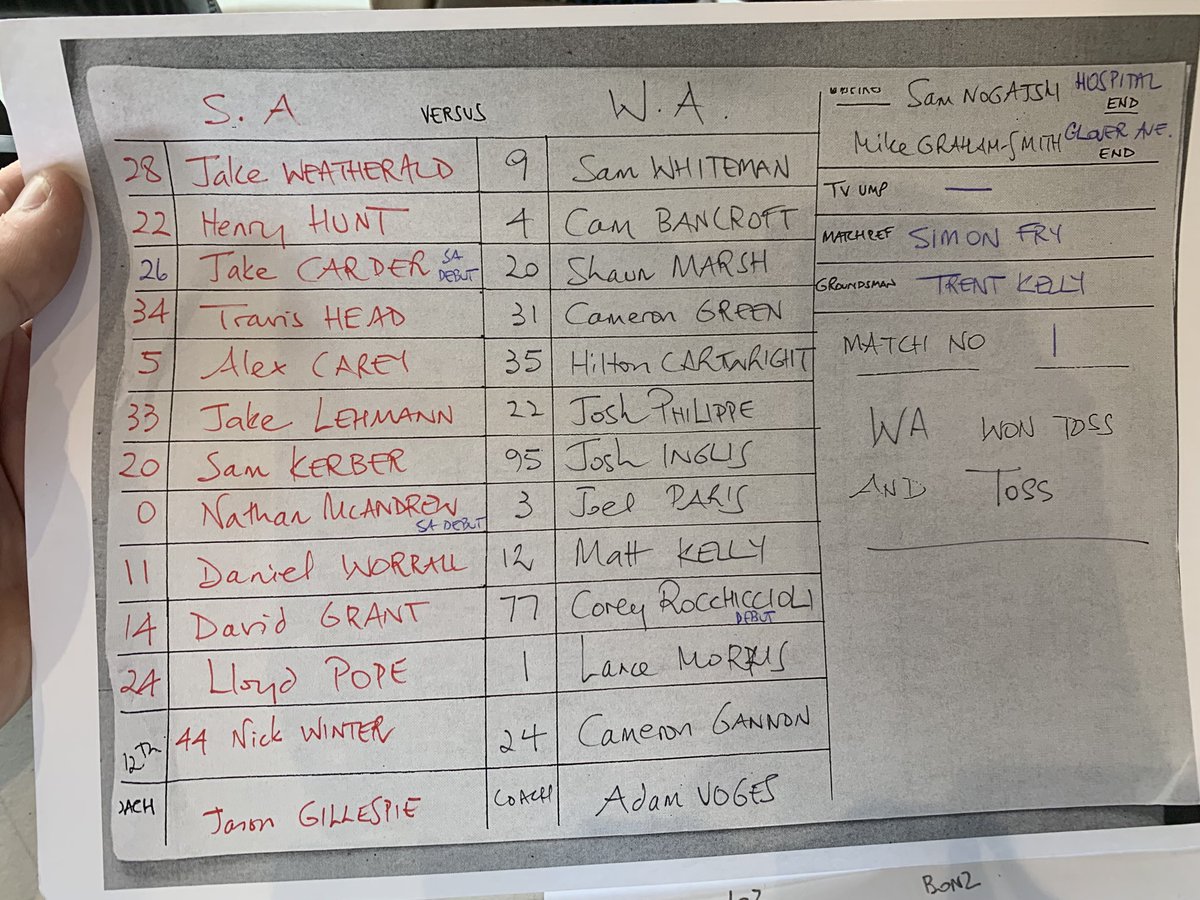 S. A VERSUS W. A.
28 Jake WEATHERALD 9 Sam WHITEMAN
22 Henry HUNT 4 Cam BANCROFT
26 Jake CARDER SA DEBUT 20 Shaun MARSH
34 Travis HEAD 31 Cameron GREEN
5 Alex CAREY 35 Hilton CARTWRIGHT
33 Jake LEHMANN 22 Josh PHILIPPE
20 Sam KERBER 95 Josh INGLIS
0 Nathan McANDREW SA DEBUT 3 Joel PARIS
11 Daniel WORRALL 12 Matt KELLY
14 David GRANT 77 Corey ROCCHICCIOLI DEBUT
24 Lloyd POPE 1 Lance MORRIS
12th 44 Nick WINTER 24 Cameron GANNON
OACH Jason GILLESPIE COACH Adam VOGES
Sam NOGAJSKI HOSPITAL END
Mike GRAHAM-SMITH GLOVER AVE. END
TV UMP —
MATCH REF SIMON FRY
GROUNDSMAN TRENT KELLY
MATCH NO 1
WA WON TOSS
AND TOSS
BONZ